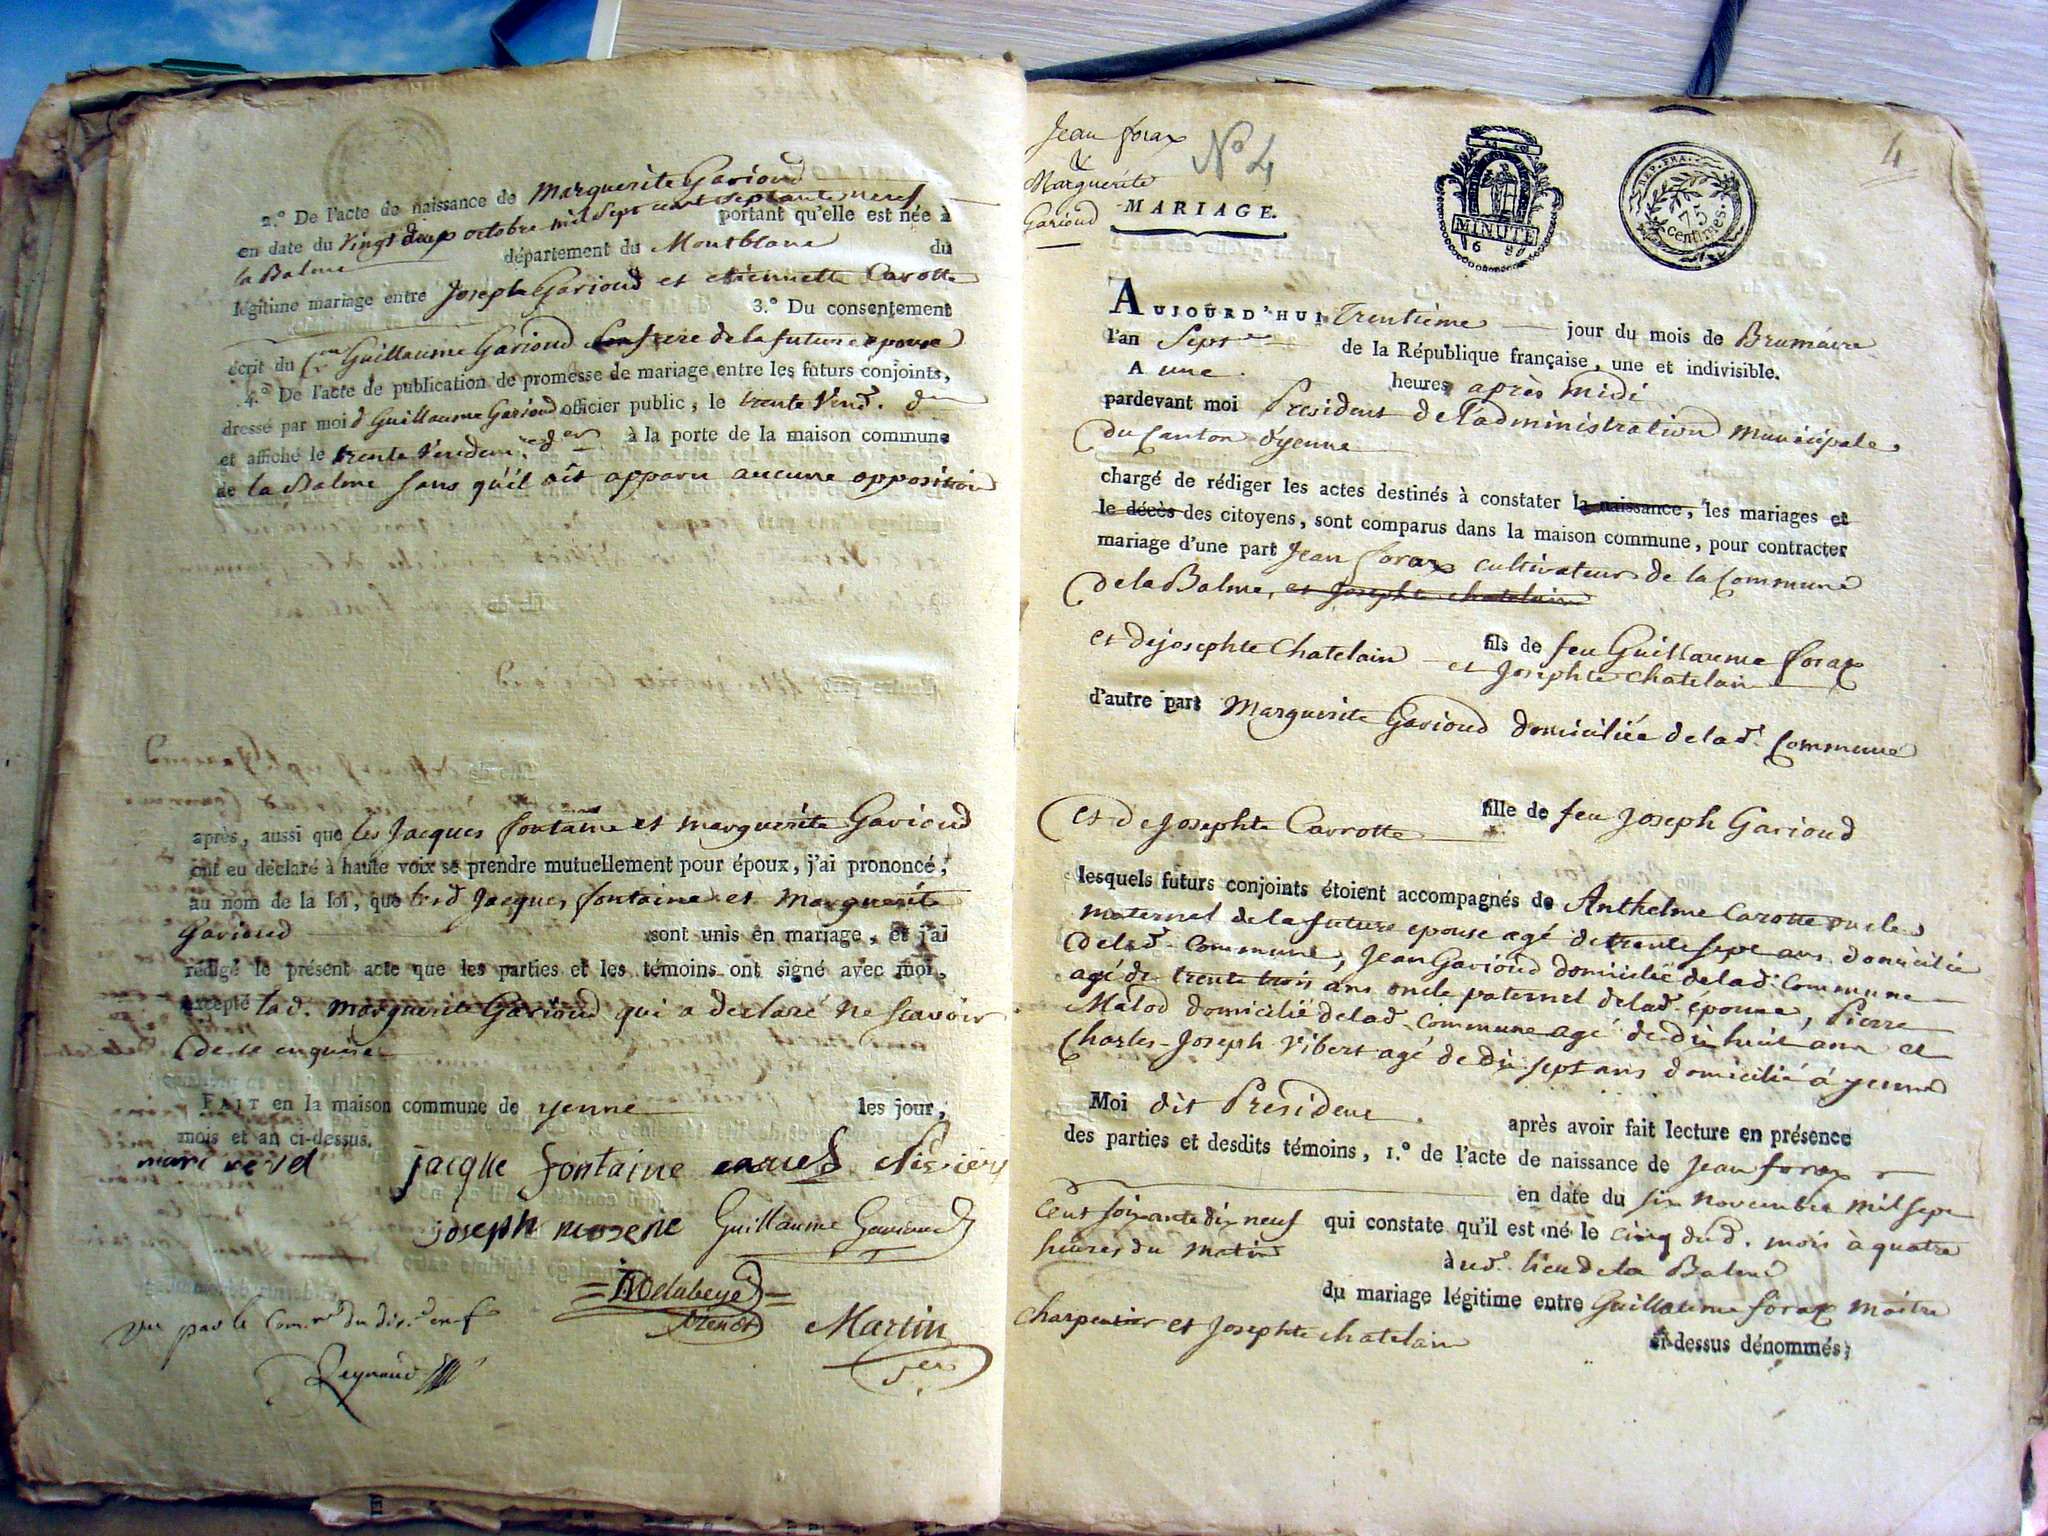 2.º De l'acte de naissance de Marguerite Garioud
en date du vingt deux octobre mil sept cent septante neuf
portant qu'elle est née à
la Balme département du Montblanc du
légitime mariage entre Joseph Garioud et etiennette Carotte
3.º Du consentement
écrit du Guillaume Garioud frere de la future epouse
4.º De l'acte de publication de promesse de mariage entre les futurs conjoints,
dressé par moi d Guillaume Garioud officier public, le trente Vend.
et affiché le trente Vendem. à la porte de la maison commune
de la Balme sans qu'il aît apparu aucune opposition
après, aussi que les Jacques fontaine et marguerite Garioud
ont eu déclaré à haute voix se prendre mutuellement pour époux, j'ai prononcé,
au nom de la loi, que Jacques fontaine et Marguerite
Garioud sont unis en mariage, et j'ai
rédigé le présent acte que les parties et les témoins ont signé avec moi,
excepté la d. marguerite Garioud qui a declaré ne scavoir
de ce enquise
FAIT en la maison commune de yenne les jour,
mois et an ci-dessus.
jacque fontaine
joseph Guillaume Garioud
Martin
vu par le
Reynaud
Jean forax
&
Marguerite
Garioud
Nº 4
4
MARIAGE.
MINUTE
REP. FRA.
75
centimes
AUJOURD'HUI Trentieme jour du mois de Brumaire
l'an Sept de la République française, une et indivisible.
A une heures après midi
pardevant moi President de l'administration municipale
du Canton d'yenne
chargé de rédiger les actes destinés à constater la naissance, les mariages et
le décès des citoyens, sont comparus dans la maison commune, pour contracter
mariage d'une part Jean forax cultivateur de la Commune
de la Balme, et Josephte chatelain
fils de feu Guillaume forax
et de josephte Chatelain et Josephte chatelain
d'autre part Marguerite Garioud domiciliée de lad. Commune
fille de feu Joseph Garioud
et de Josephte Carrotte
lesquels futurs conjoints étoient accompagnés de Anthelme Carotte oncle
maternel de la future epouse agé de trente sept ans domicilié
de lad. Commune, Jean Garioud domicilié de lad. Commune
agé de trente trois ans oncle paternel de lad. epouse, Pierre
Malod domicilié de lad. commune agé de dix huit ans et
Charles-Joseph Vibert agé de dix sept ans domicilié à yenne
Moi dit President après avoir fait lecture en présence
des parties et desdits témoins, 1.º de l'acte de naissance de Jean forax
en date du six novembre mil sept
cent soixante dix neuf qui constate qu'il est né le cinq dud. mois à quatre
heures du matin aud. lieu de la Balme
du mariage légitime entre Guillaume forax maitre
charpentier et Josephte chatelain
ci-dessus dénommés;